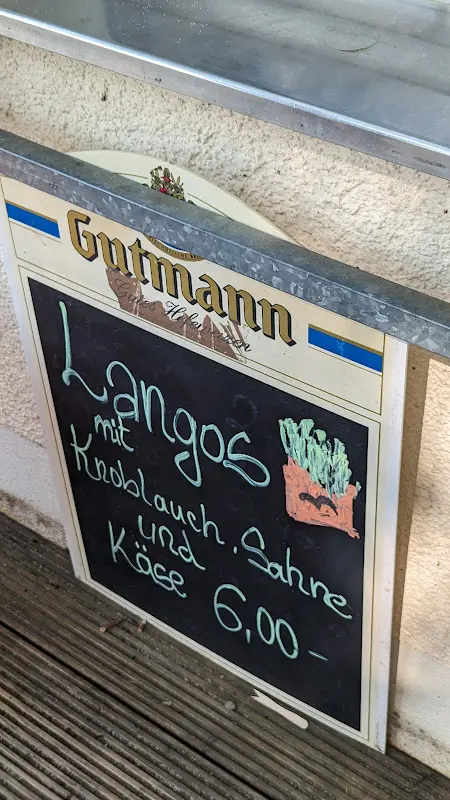 Gutmann
Langos
mit
Knoblauch, Sahne
und
Käse 6,00-